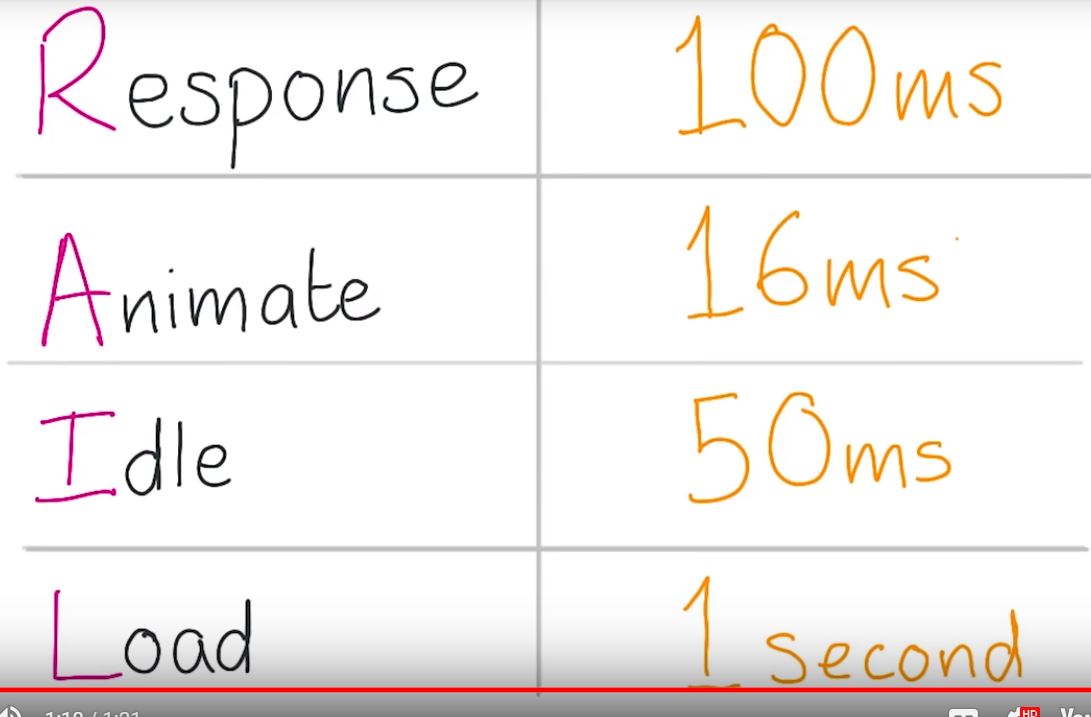 Response 100ms
Animate 16ms
Idle 50ms
Load 1 second
HD